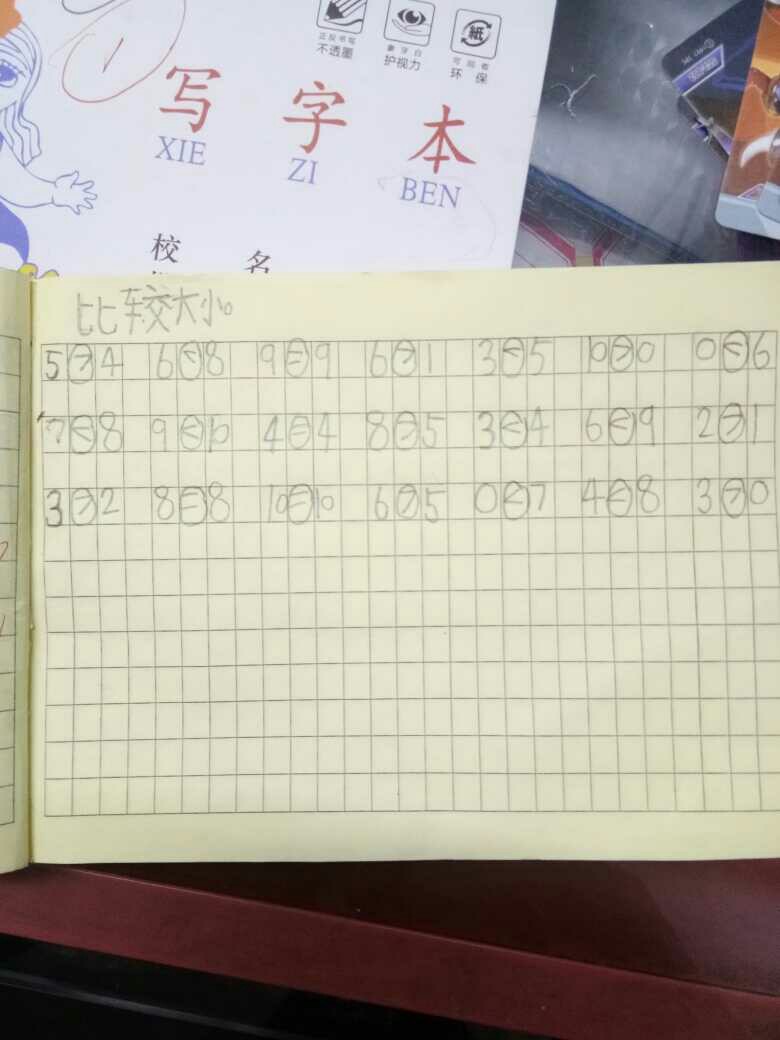 正反书写 蒙牙白 可回者
不透墨 护视力 环保
紙
写字本
XIE ZI BEN
校 名
比较大小。
5>4 6<8 9=9 6>1 3<5 10>0 0<6
7<8 9<10 4=4 8>5 3<4 6<9 2>1
3>2 8=8 10=10 6>5 0<7 4<8 3>0